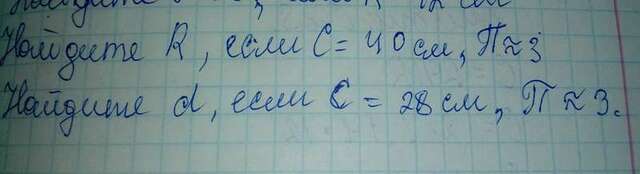 Найдите
Найдите R, если C = 40 см, П ≈ 3
Найдите d, если C = 28 см, П ≈ 3.